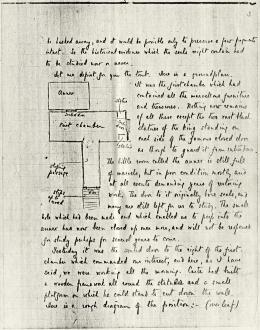 be hacked away, and it would be possible only to preserve a few fragments
intact. So the historical evidence which the seals might contain had
to be studied now or never.
Let me depict for you the tomb. Here is a ground plan.
Annex
First chamber
sloping
passage
steps
It was the first chamber which had
contained all the marvellous furniture
and treasures. Nothing now remains
of all these except the two great black
statues of the king standing on
each side of the famous closed door
as though to guard it from intruders.
The little room called the annex is still full
of marvels, but in poor condition mostly and
at all events demanding years of
work. The door to it originally had seals, and
many are still left for us to study. The small
hole which has been made and which enabled us to peep into the
annex has now been closed up once more, and will not be reopened
for study perhaps for several years to come.
Yesterday it was the sealed door to the right of the first
chamber which commanded our interest, and here, as I have
said, we were working all the morning. Carter had built
a wooden framework all around the statues and a small
platform on which he could stand to cut down the wall.
Here is a rough diagram of the position :- (overleaf)